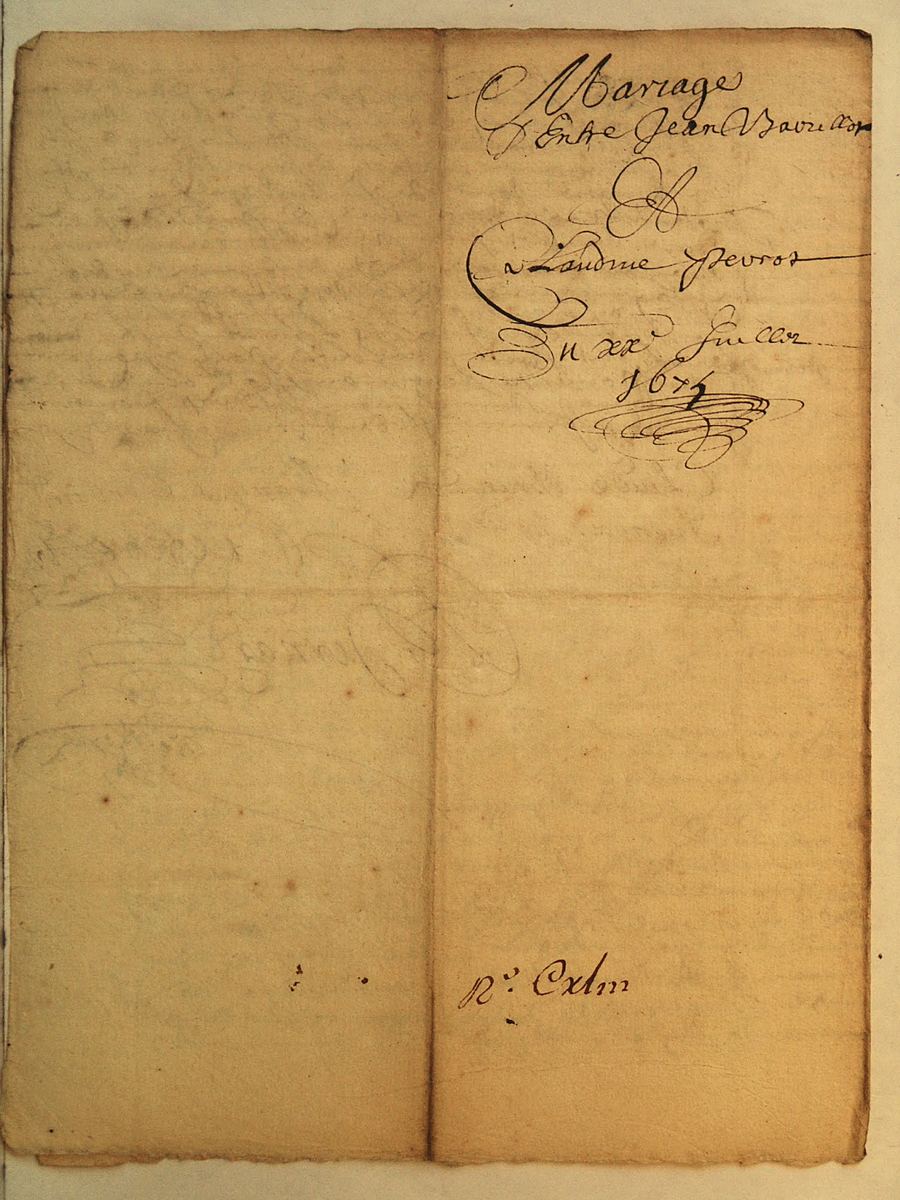 Mariage
Entre Jean
Et
Claudine Pevrot
Du xxe Juillet
1674
No. Cxlm